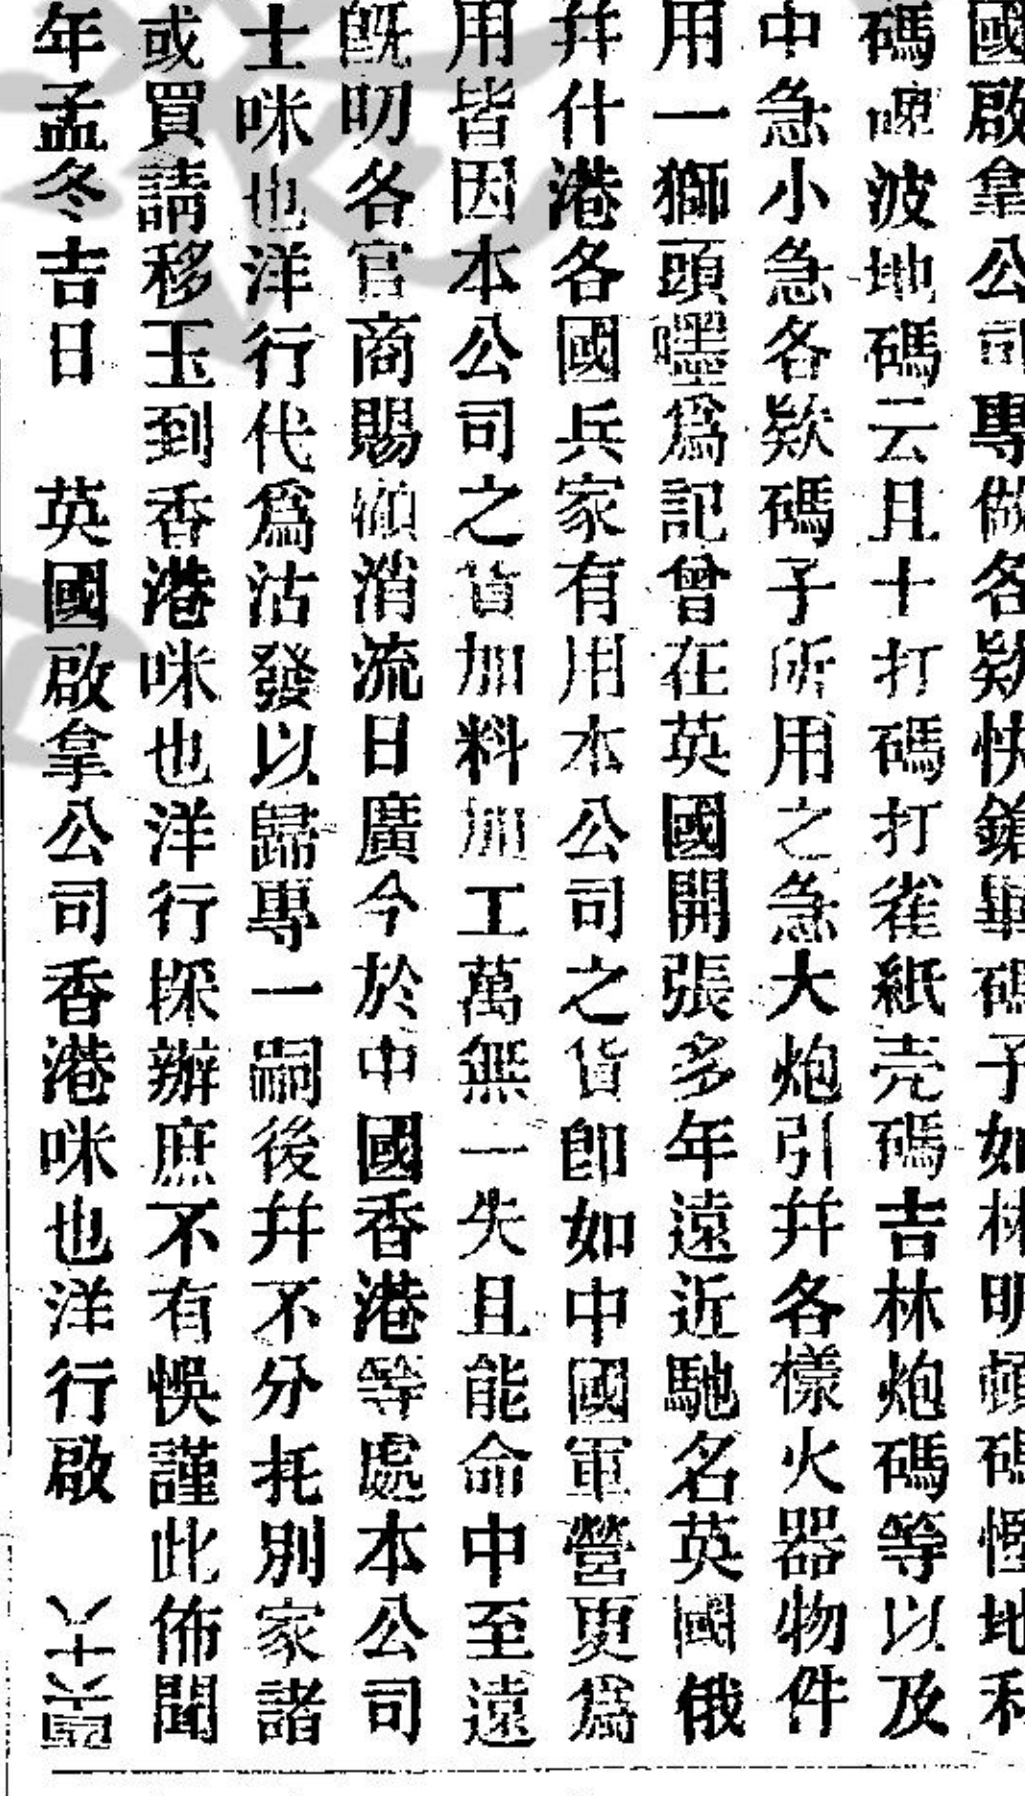 國啟拿公司專做各欵快鎗畢碼子如林明頓碼慳地利
碼啤波地碼云且十打碼打雀紙壳碼吉林炮碼等以及
中急小急各欵碼子所用之急大炮引幷各樣火器物件
用一獅頭嘿爲記曾在英國開張多年遠近馳名英國俄
幷什港各國兵家有用本公司之貨即如中國軍營更爲
用皆因本公司之貨加料加工萬無一失且能命中至遠
旣叨各官商賜顧消流日廣今於中國香港等處本公司
士咪也洋行代爲沽發以歸專一嗣後幷不分托別家諸
或買請移玉到香港咪也洋行採辦庶不有悞謹此佈聞
年孟冬吉日 英國啟拿公司香港咪也洋行啟